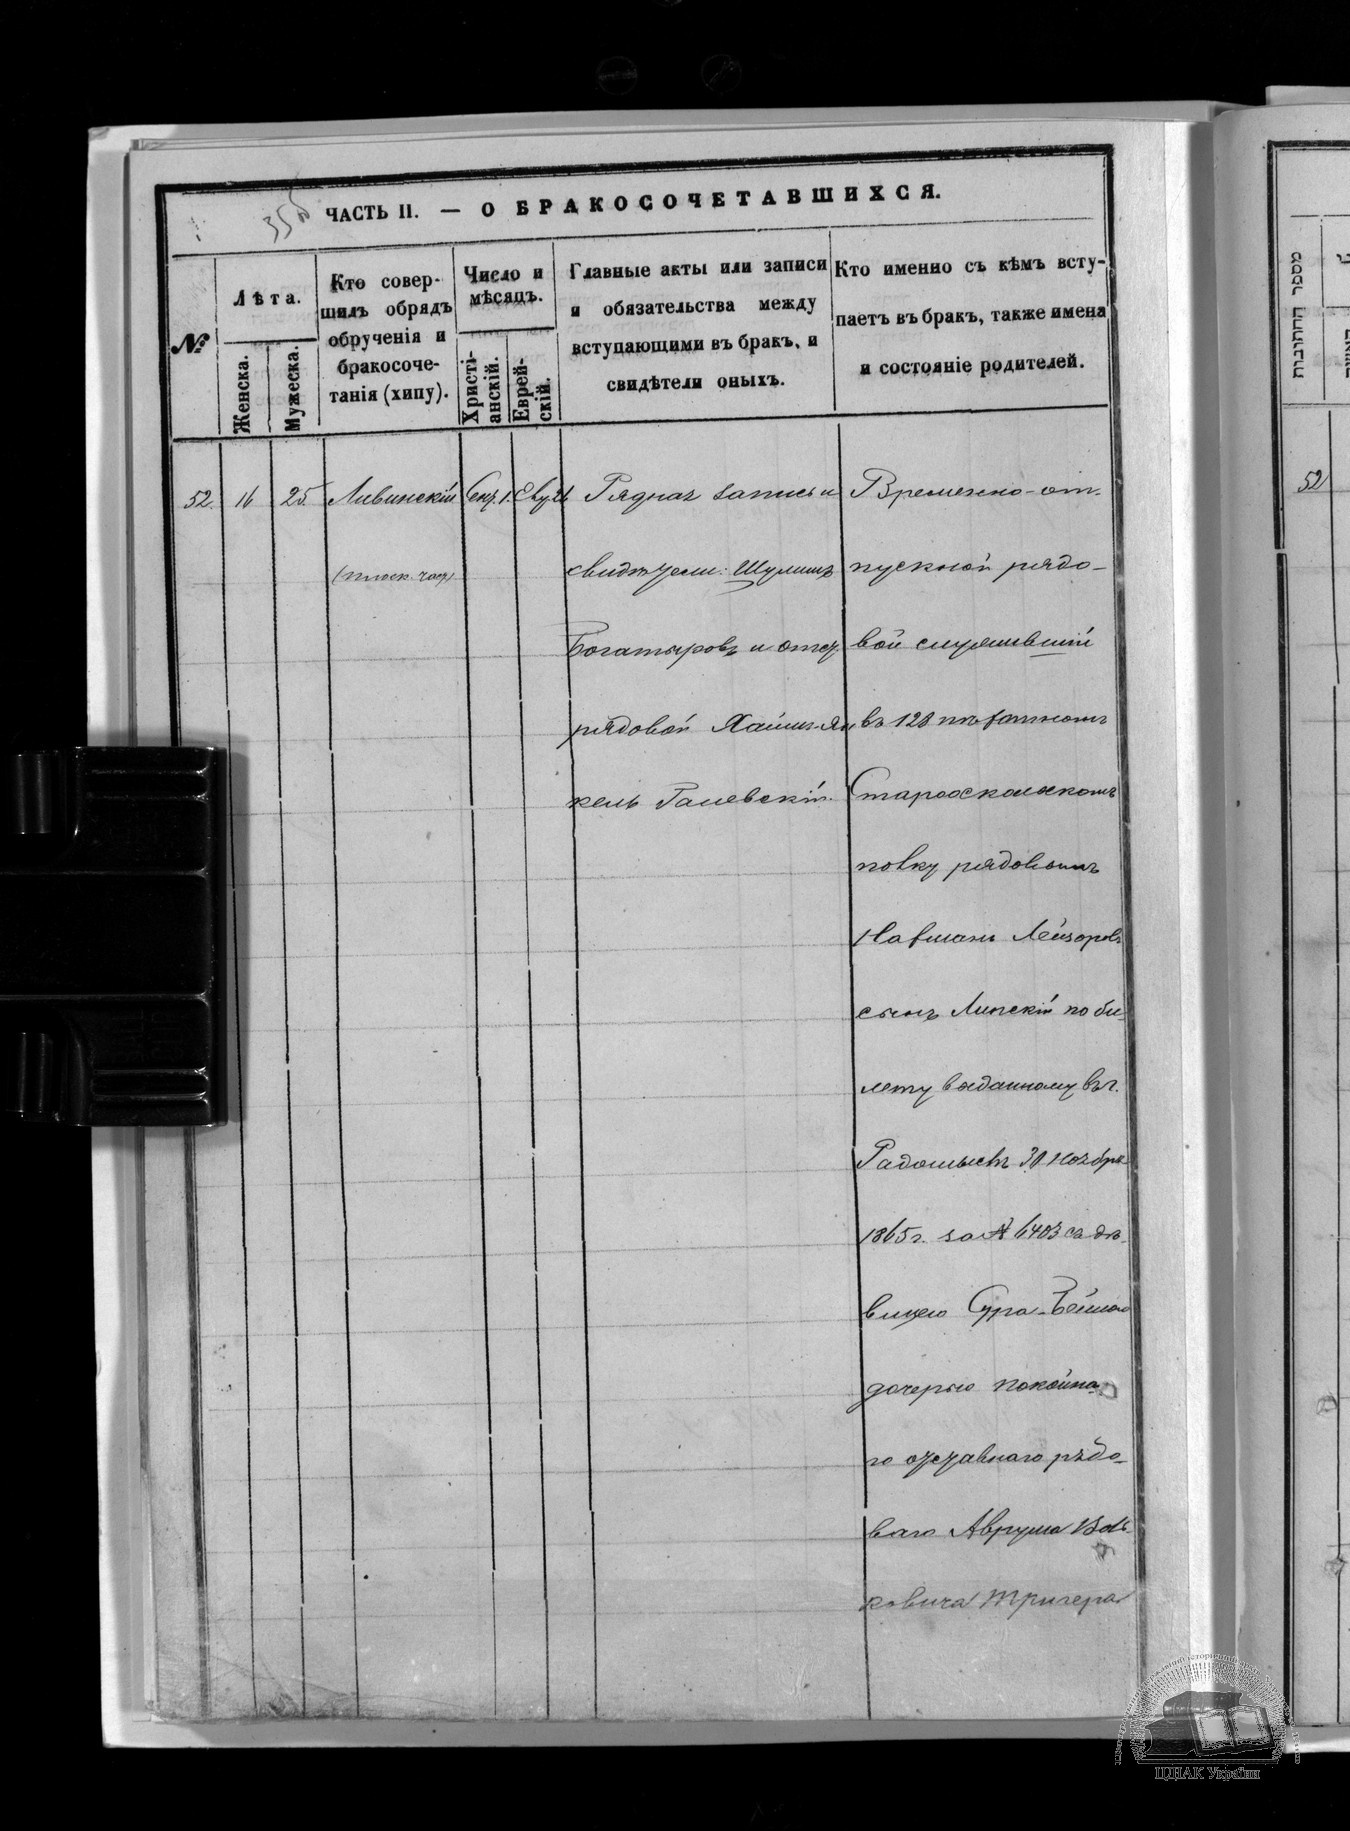 ЧАСТЬ II. — О БРАКОСОЧЕТАВШИХСЯ.
№
Лѣта.
Женска.
Мужеска.
Кто совер-
шилъ обрядъ
обрученія и
бракосоче-
танія (хипу).
Число и
мѣсяцъ.
Христі-
анскій.
Еврей-
скій.
Главные акты или записи
и обязательства между
вступающими въ бракъ, и
свидѣтели оныхъ.
Кто именно съ кѣмъ всту-
паетъ въ бракъ, также имена
и состояніе родителей.
52.
16
25
Ливинскій
Рядная запись и
свидѣтели: Шулимъ
Богатыровъ и отст.
рядовой Хаимъ-Ян
кель Галевскій.
Временно-от-
пускной рядо-
вой служившій
въ 128 пѣхотномъ
Старооскольскомъ
полку рядовымъ
Нафманъ Лейзоровъ
сынъ Липскій по би-
лету выданному въ г.
Радомыслѣ 30 Ноября
1865 г. за № 6403 съ дѣ-
вицею Сура-Бейлою
дочерью покойна-
го отставного рядо-
ваго Аврума Воль-
ковича Тригера
מספר החתונות
52
ЦДІАК України